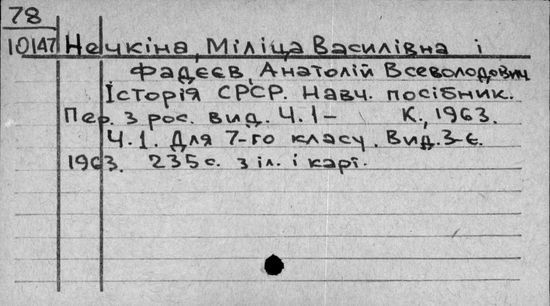 78
10147 Нечкіна, Міліца Василівна і
Фадєєв, Анатолій Всеволодович
Історія СРСР. Навч. посібник.
Пер. з рос. вид. Ч. 1- К., 1963.
Ч. 1. Для 7-го класу. Вид. 3-є.
1963. 235с. з іл. і карт.